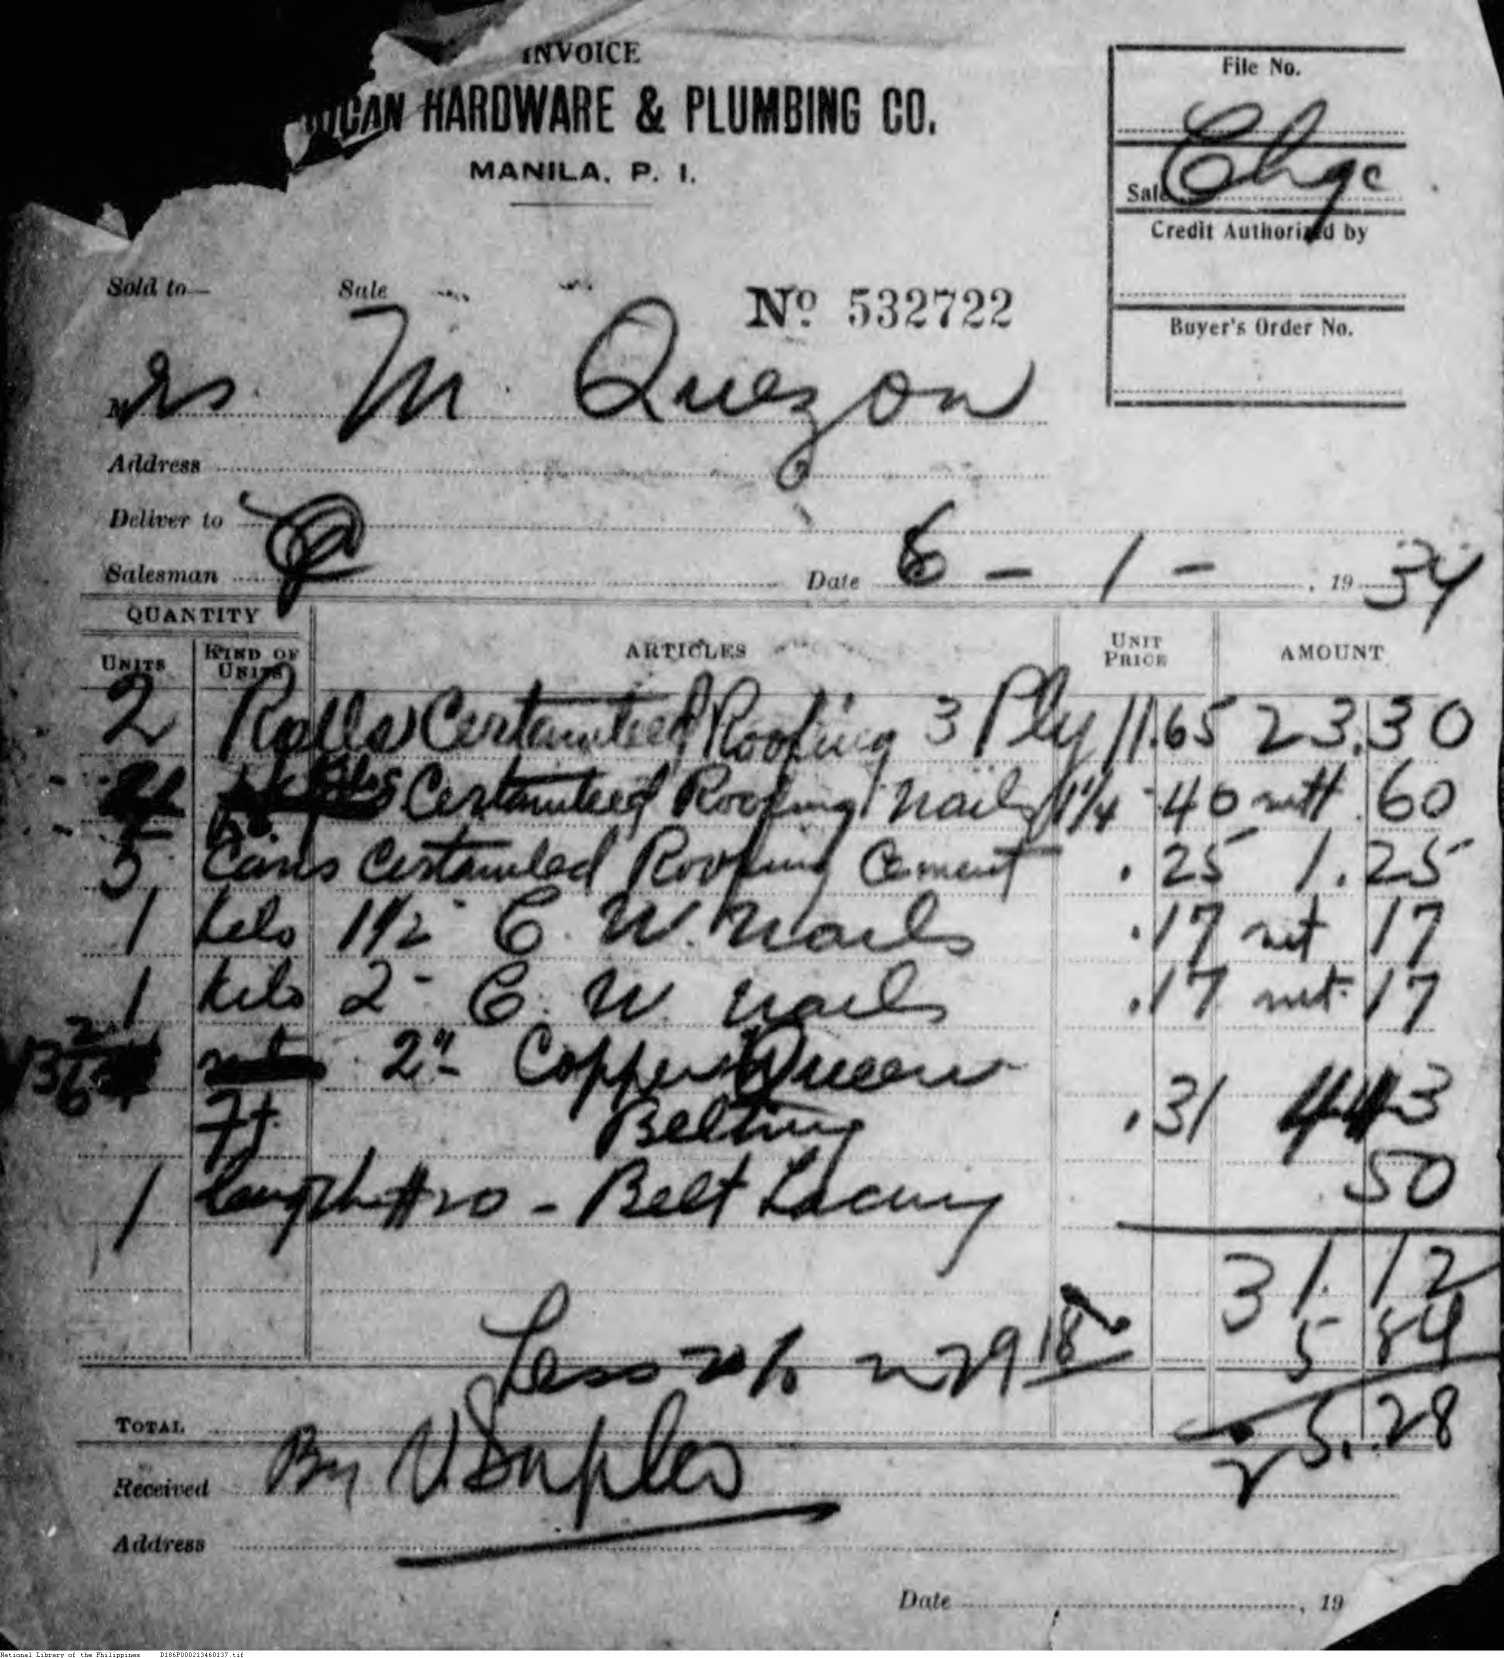 INVOICE
ICAN HARDWARE & PLUMBING CO.
MANILA, P. I.
File No.
Chgc
Sale
Credit Authorized by
Buyer's Order No.
Sold to—
Sale
No 532722
Mrs. M. Quezon
Address
Deliver to
Salesman
Date 6 - 1 - , 19 34
QUANTITY
UNITS KIND OF UNITS ARTICLES UNIT PRICE AMOUNT
2 Rolls Certainteed Roofing 3 Ply 11.65 23.30
Certainteed Roofing Nails 1 1/4 .40 nett .60
5 Cans Certainteed Roofing Cement .25 1.25
1 kilo 1 1/2" C. W. Nails .17 net 17
1 kilo 2" C. W. nails .17 net 17
2" Copper Queen
Ft. Belting .31 4 43
1 length #20 - Belt Lacing 50
31.12
Less 20% on 29 18 5 84
TOTAL 25.28
Received By V. Suples
Address
Date , 19
National Library of the Philippines D186P000213460137.tif